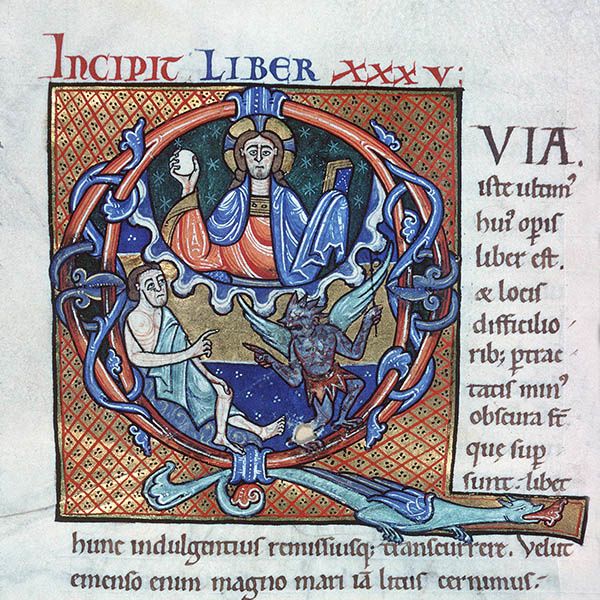 INCIPIT LIBER XXXV:
VIA.
iste ultim᾽
hui᾽ opis
liber est.
& locis
difficilio
rib; ptrac
tatis min᾽
obscura st̄
que sup
sunt· libet
hunc indulgentius remissiusq; transcurrere. Velut
emenso enim magno mari iā litus cernimus·